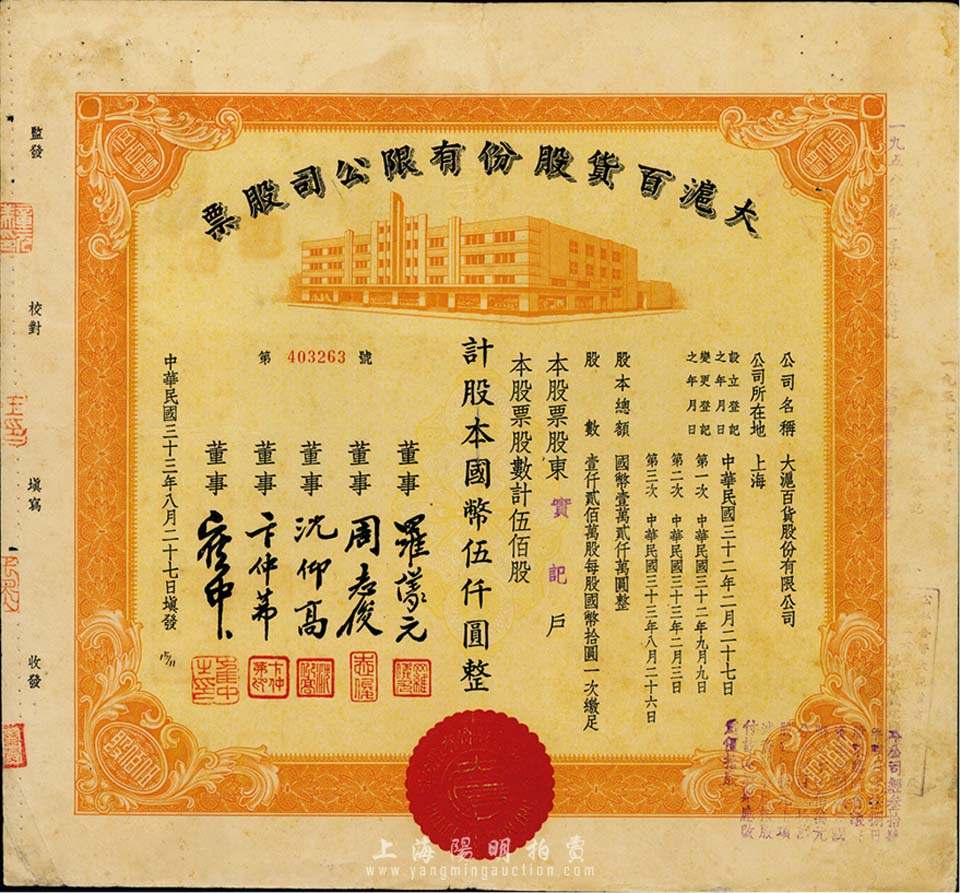 大滬百貨股份有限公司股票
公司名稱 大滬百貨股份有限公司
公司所在地 上海
設立登記之年月日 中華民國三十二年二月二十七日
變更登記之年月日 第一次 中華民國三十二年九月九日
第二次 中華民國三十三年二月三日
第三次 中華民國三十三年八月二十六日
股本總額 國幣壹萬貳仟萬圓整
股數 壹仟貳佰萬股每股國幣拾圓一次繳足
本股票股東 實記 戶
本股票股數計伍佰股
計股本國幣伍仟圓整
第 403263 號
董事 羅
元
董事 周志俊
董事 沈仰高
董事 卞仲茀
董事
中華民國三十三年八月二十七日填發
監發
校對
填寫
收發
上海陽明拍賣
www.yangmingauction.com